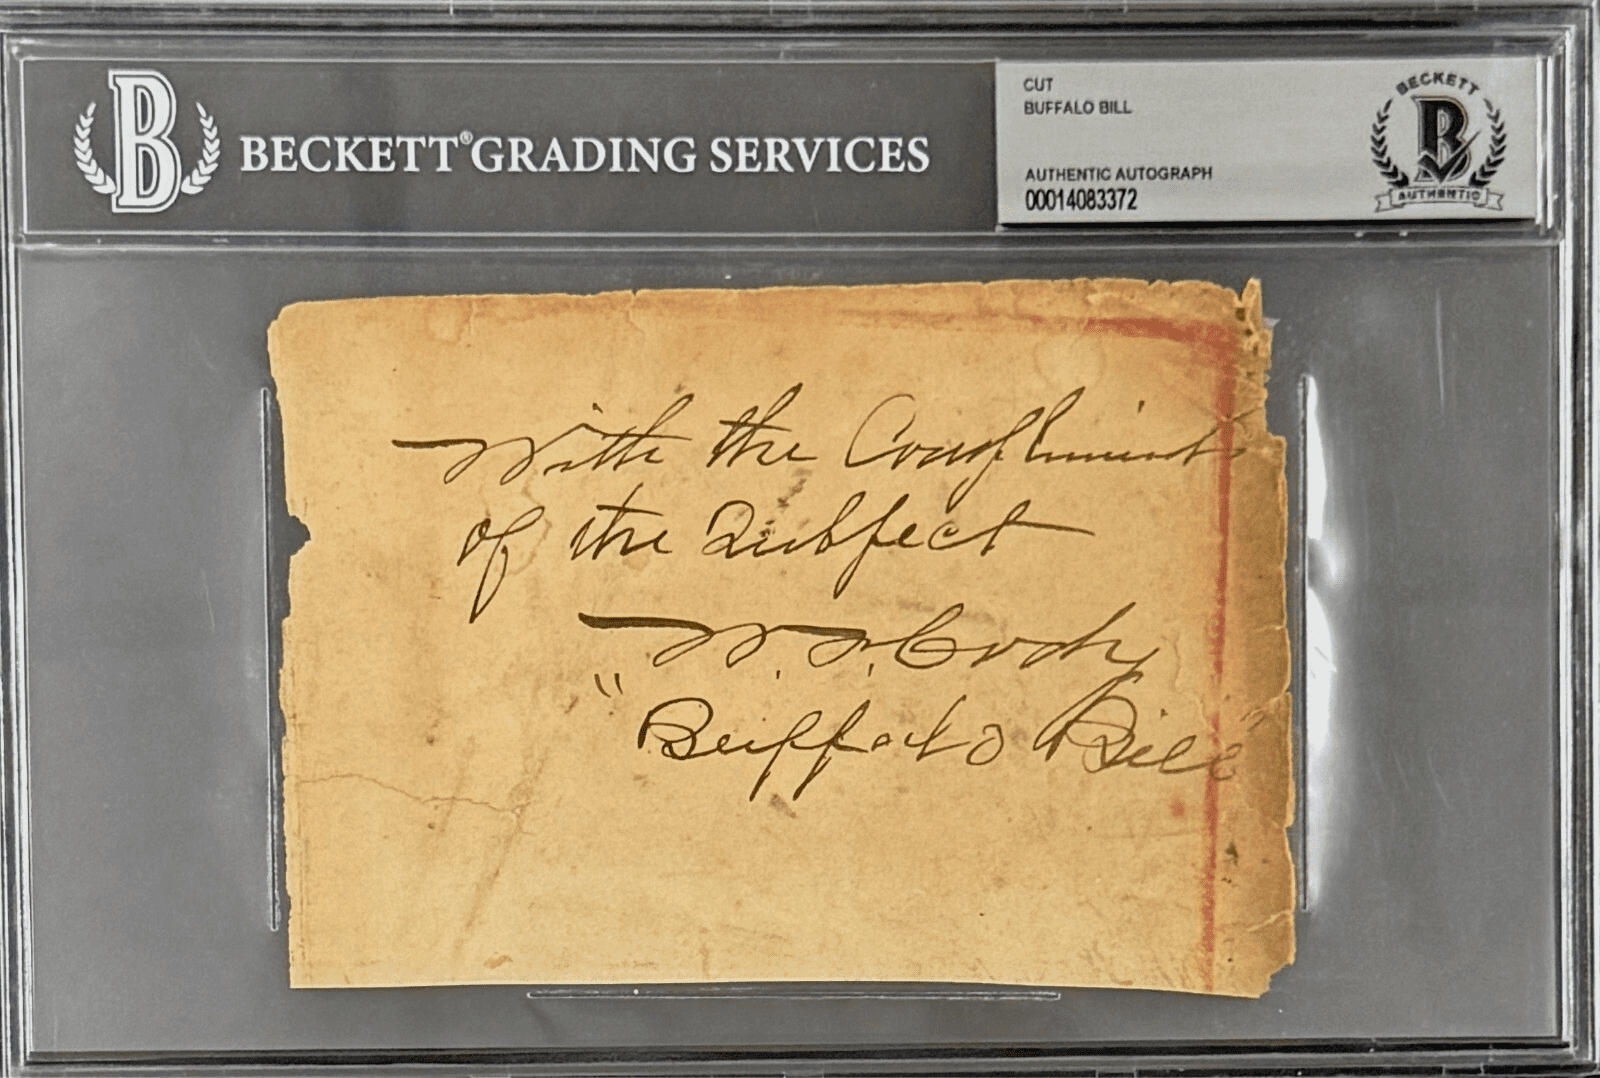 B BECKETT® GRADING SERVICES
CUT
BUFFALO BILL
AUTHENTIC AUTOGRAPH
00014083372
BECKETT
B
AUTHENTIC
With the Compliments
of the Subject
W. F. Cody
"Buffalo Bill"